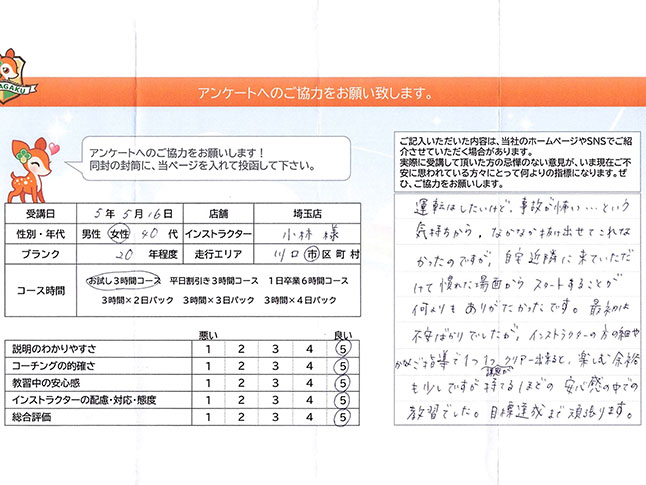 AGAKU
アンケートへのご協力をお願い致します。
アンケートへのご協力をお願いします！
同封の封筒に、当ページを入れて投函して下さい。
ご記入いただいた内容は、当社のホームページやSNSでご紹介させていただく場合があります。
実際に受講して頂いた方の忌憚のない意見が、いま現在ご不安に思われている方々にとって何よりの指標になります。ぜひ、ご協力をお願いします。
受講日 5年 5月 16日 店舗 埼玉店
性別・年代 男性 女性 40代 インストラクター 小林 様
ブランク 20 年程度 走行エリア 川口 市区町村
コース時間 お試し3時間コース 平日割引き3時間コース 1日卒業6時間コース
3時間×2日パック 3時間×3日パック 3時間×4日パック
悪い 良い
説明のわかりやすさ 1 2 3 4 5
コーチングの的確さ 1 2 3 4 5
教習中の安心感 1 2 3 4 5
インストラクターの配慮・対応・態度 1 2 3 4 5
総合評価 1 2 3 4 5
運転はしたいけど、事故が怖い…という
気持ちから、なかなか抜け出せてこれな
かったのですが、自宅近隣に来ていただ
けて慣れた場面から スタートすることが
何よりも ありがたかったです。最初は
不安ばかりでしたが、インストラクターの方の細や
かなご指導で1つ1つクリアー出来ると、楽しむ余裕
も少しですが 持てるほどの 安心感の中での
教習でした。目標達成まで頑張ります。